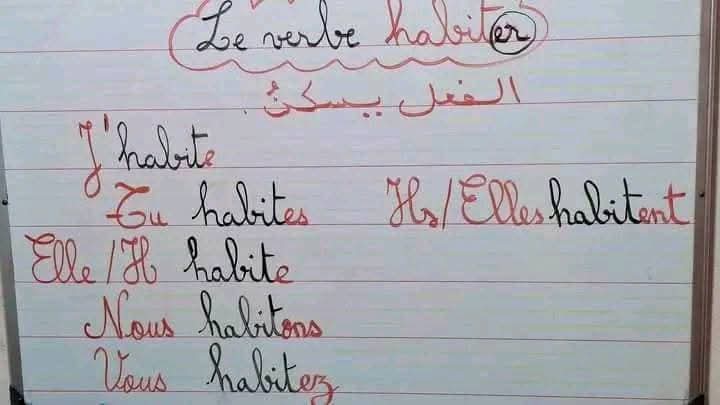 Le verbe habiter
الفعل يسكنُ.
J'habite
Tu habites Ils/Elles habitent
Elle/Il habite
Nous habitons
Vous habitez